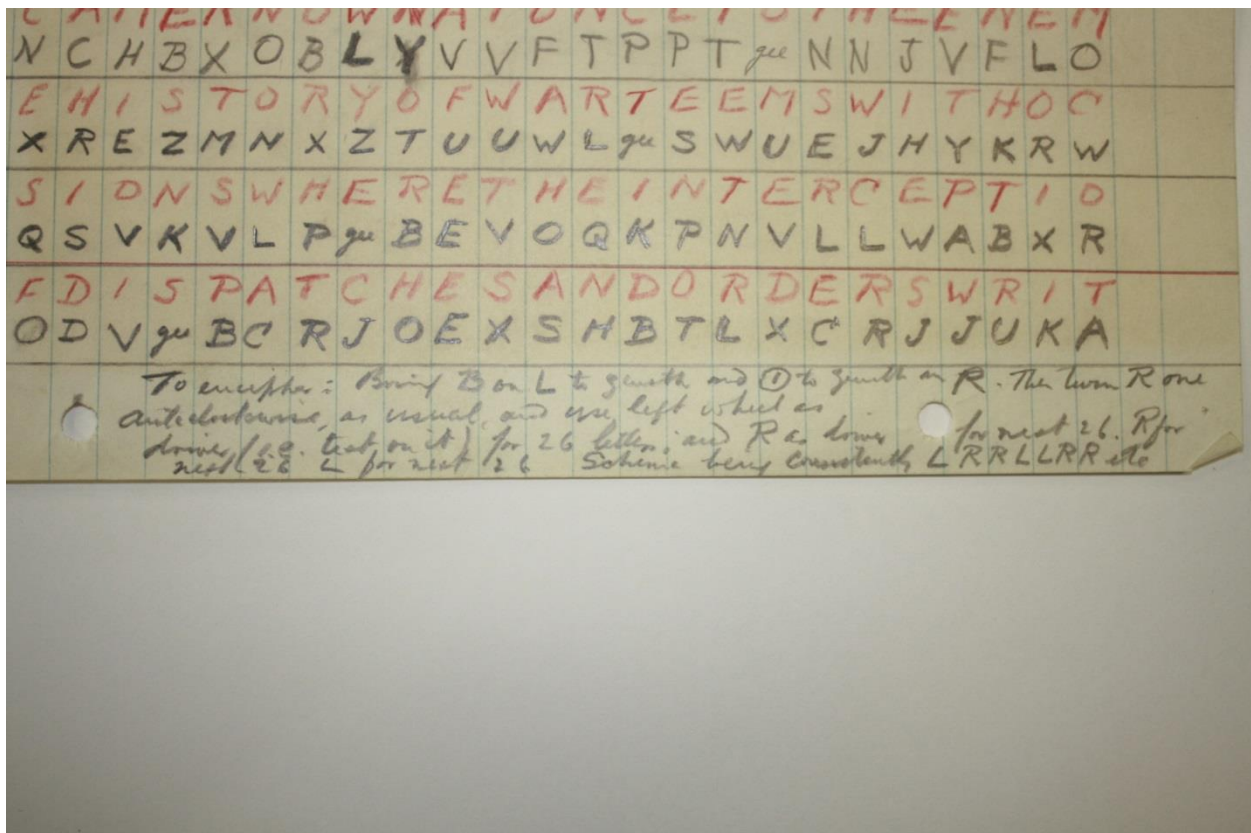 C A M E K N O W N A T O N C E T O T H E E N E M
N C H B X O B L Y V V F T P P T gee N N J V F L O
E H I S T O R Y O F W A R T E E M S W I T H O C
X R E Z M N X Z T U U W L gee S W U E J H Y K R W
S I O N S W H E R E T H E I N T E R C E P T I O
Q S V K V L P gee B E V O Q K P N V L L W A B X R
F D I S P A T C H E S A N D O R D E R S W R I T
O D V gee B C R J O E X S H B T L X C R J J U K A
To encipher: Bring B on L to zenith and ① to zenith on R. Then turn R one
anticlockwise, as usual, and use left wheel as
driver (i.e. text on it) for 26 letters; and R as driver for next 26. R for
next 26 L for next 26 Scheme being consistently L R R L L R R etc